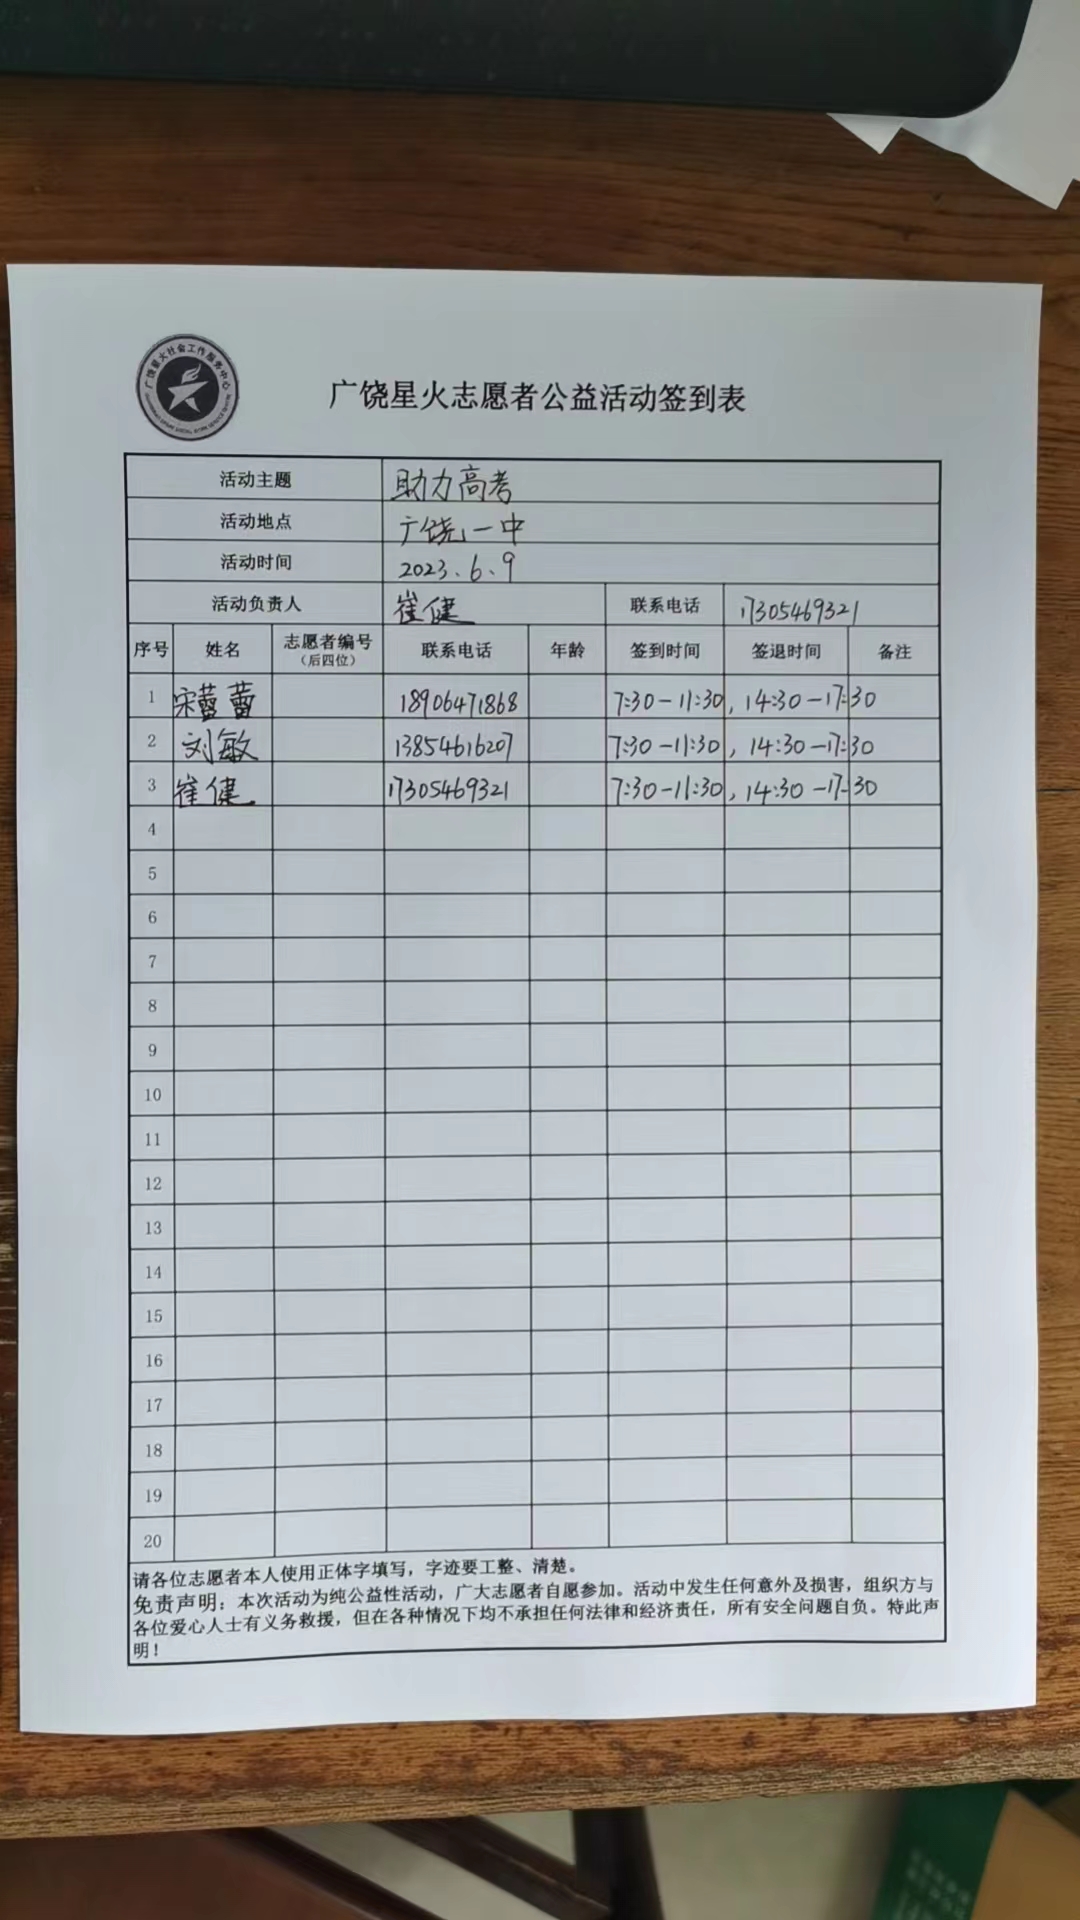 广饶星火社会工作服务中心
广饶星火志愿者公益活动签到表
活动主题 助力高考
活动地点 广饶一中
活动时间 2023.6.9
活动负责人 崔健 联系电话 17305469321
序号 姓名 志愿者编号（后四位） 联系电话 年龄 签到时间 签退时间 备注
1 宋蕾蕾 18906471868 7:30-11:30, 14:30-17:30
2 刘敏 13854616207 7:30-11:30, 14:30-17:30
3 崔健 17305469321 7:30-11:30, 14:30-17:30
4
5
6
7
8
9
10
11
12
13
14
15
16
17
18
19
20
请各位志愿者本人使用正体字填写，字迹要工整、清楚。
免责声明：本次活动为纯公益性活动，广大志愿者自愿参加。活动中发生任何意外及损害，组织方与
各位爱心人士有义务救援，但在各种情况下均不承担任何法律和经济责任，所有安全问题自负。特此声
明！